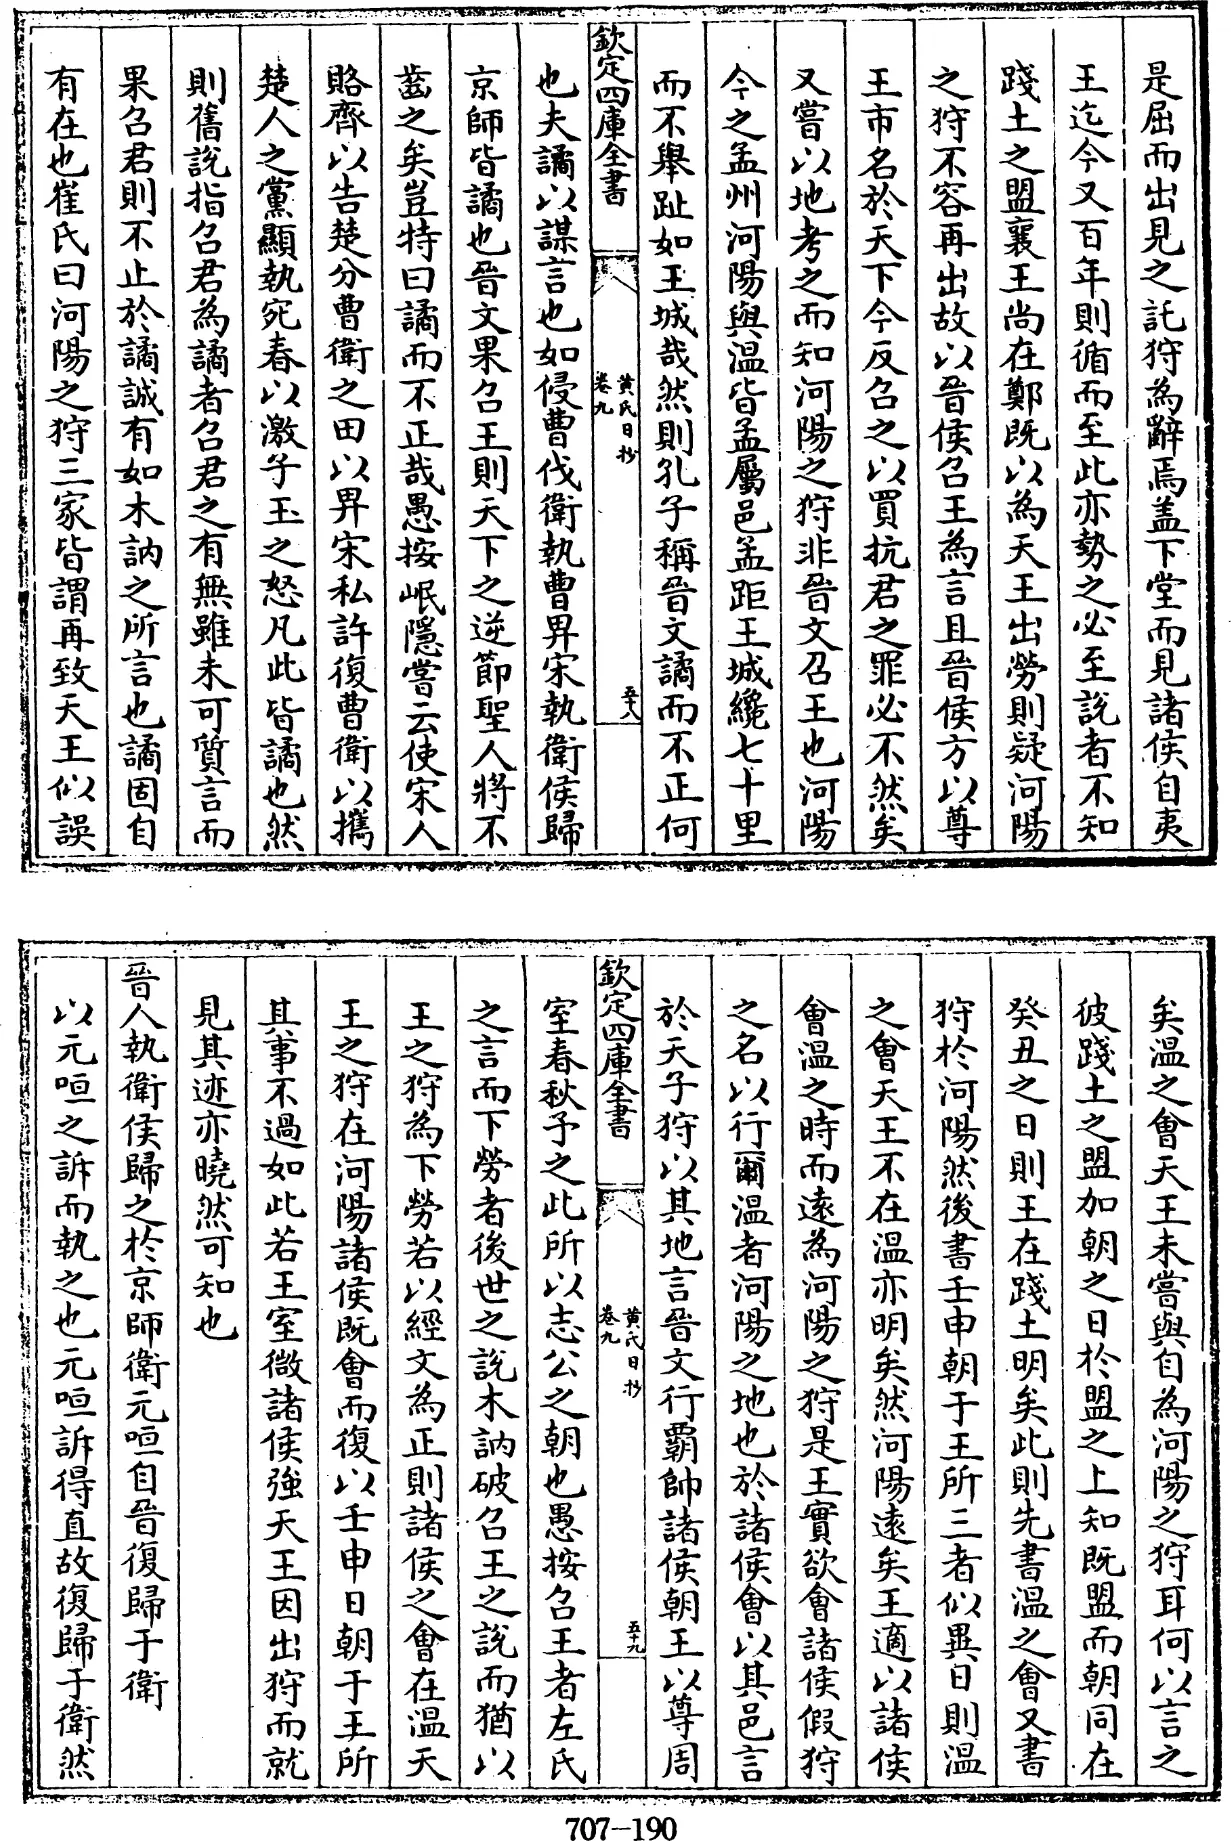 是屈而出見之託狩為辭焉盖下堂而見諸侯自夷
王迄今又百年則循而至此亦勢之必至說者不知
踐土之盟襄王尚在鄭既以為天王出勞則疑河陽
之狩不容再出故以晉侯召王為言且晉侯方以尊
王市名於天下今反召之以買抗君之罪必不然矣
又嘗以地考之而知河陽之狩非晉文召王也河陽
今之孟州河陽與温皆孟屬邑孟距王城纔七十里
而不舉趾如王城哉然則孔子稱晉文譎而不正何
欽定四庫全書
黄氏日抄
卷九
五十八
也夫譎以謀言也如侵曹伐衛執曹畀宋執衛侯歸
京師皆譎也晉文果召王則天下之逆節聖人將不
齒之矣豈特曰譎而不正哉愚按岷隱嘗云使宋人
賂齊以告楚分曹衛之田以畀宋私許復曹衛以攜
楚人之黨顯執宛春以激子玉之怒凡此皆譎也然
則舊說指召君為譎者召君之有無雖未可質言而
果召君則不止於譎誠有如木訥之所言也譎固自
有在也崔氏曰河陽之狩三家皆謂再致天王似誤
矣温之會天王未嘗與自為河陽之狩耳何以言之
彼踐土之盟加朝之日於盟之上知既盟而朝同在
癸丑之日則王在踐土明矣此則先書温之會又書
狩於河陽然後書壬申朝于王所三者似異日則温
之會天王不在温亦明矣然河陽遠矣王適以諸侯
會温之時而遠為河陽之狩是王實欲會諸侯假狩
之名以行爾温者河陽之地也於諸侯會以其邑言
於天子狩以其地言晉文行霸帥諸侯朝王以尊周
欽定四庫全書
黄氏日抄
卷九
五十九
室春秋予之此所以志公之朝也愚按召王者左氏
之言而下勞者後世之說木訥破召王之說而猶以
王之狩為下勞若以經文為正則諸侯之會在温天
王之狩在河陽諸侯既會而復以壬申日朝于王所
其事不過如此若王室微諸侯強天王因出狩而就
見其迹亦曉然可知也
晉人執衛侯歸之於京師衛元咺自晉復歸于衛
以元咺之訴而執之也元咺訴得直故復歸于衛然
707-190